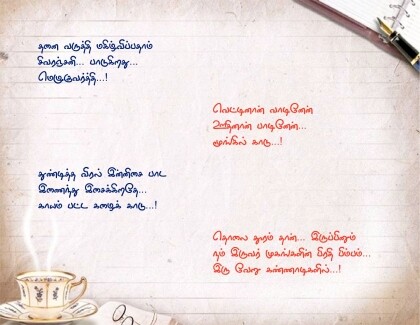 தனை வருத்தி மகிழ்விப்பதாம்
சிவரஞ்சனி... பாடுகிறது...
மெழுகுவர்த்தி...!
வெட்டினான் வாடினேன்
ஊதினான் பாடினேன்...
மூங்கில் காடு...!
துண்டித்த விரல் இன்னிசை பாட
இணைந்து இசைக்கிறதே...
காயம் பட்ட கழைக் காடு...!
தொலை தூரம் தான்... இருப்பினும்
நம் இருவர் முகங்களின் பிரதி பிம்பம்...
இரு வேறு கண்ணாடிகளில்...!